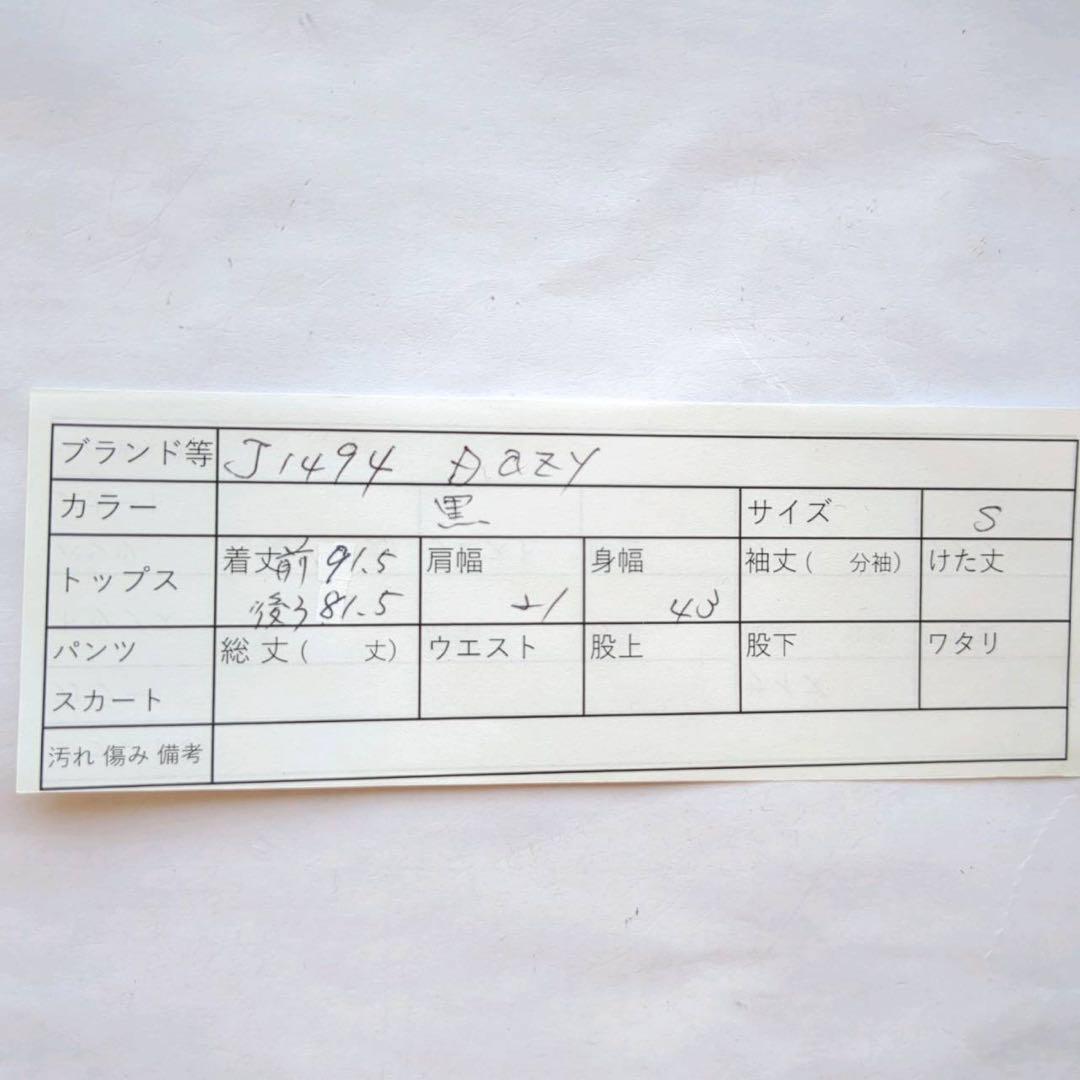 ブランド等 J1494 Dazy
カラー 黒 サイズ S
トップス 着丈 前 91.5 後ろ 81.5 肩幅 身幅 43 袖丈( 分袖) けた丈
パンツ スカート 総丈( 丈) ウエスト 股上 股下 ワタリ
汚れ 傷み 備考